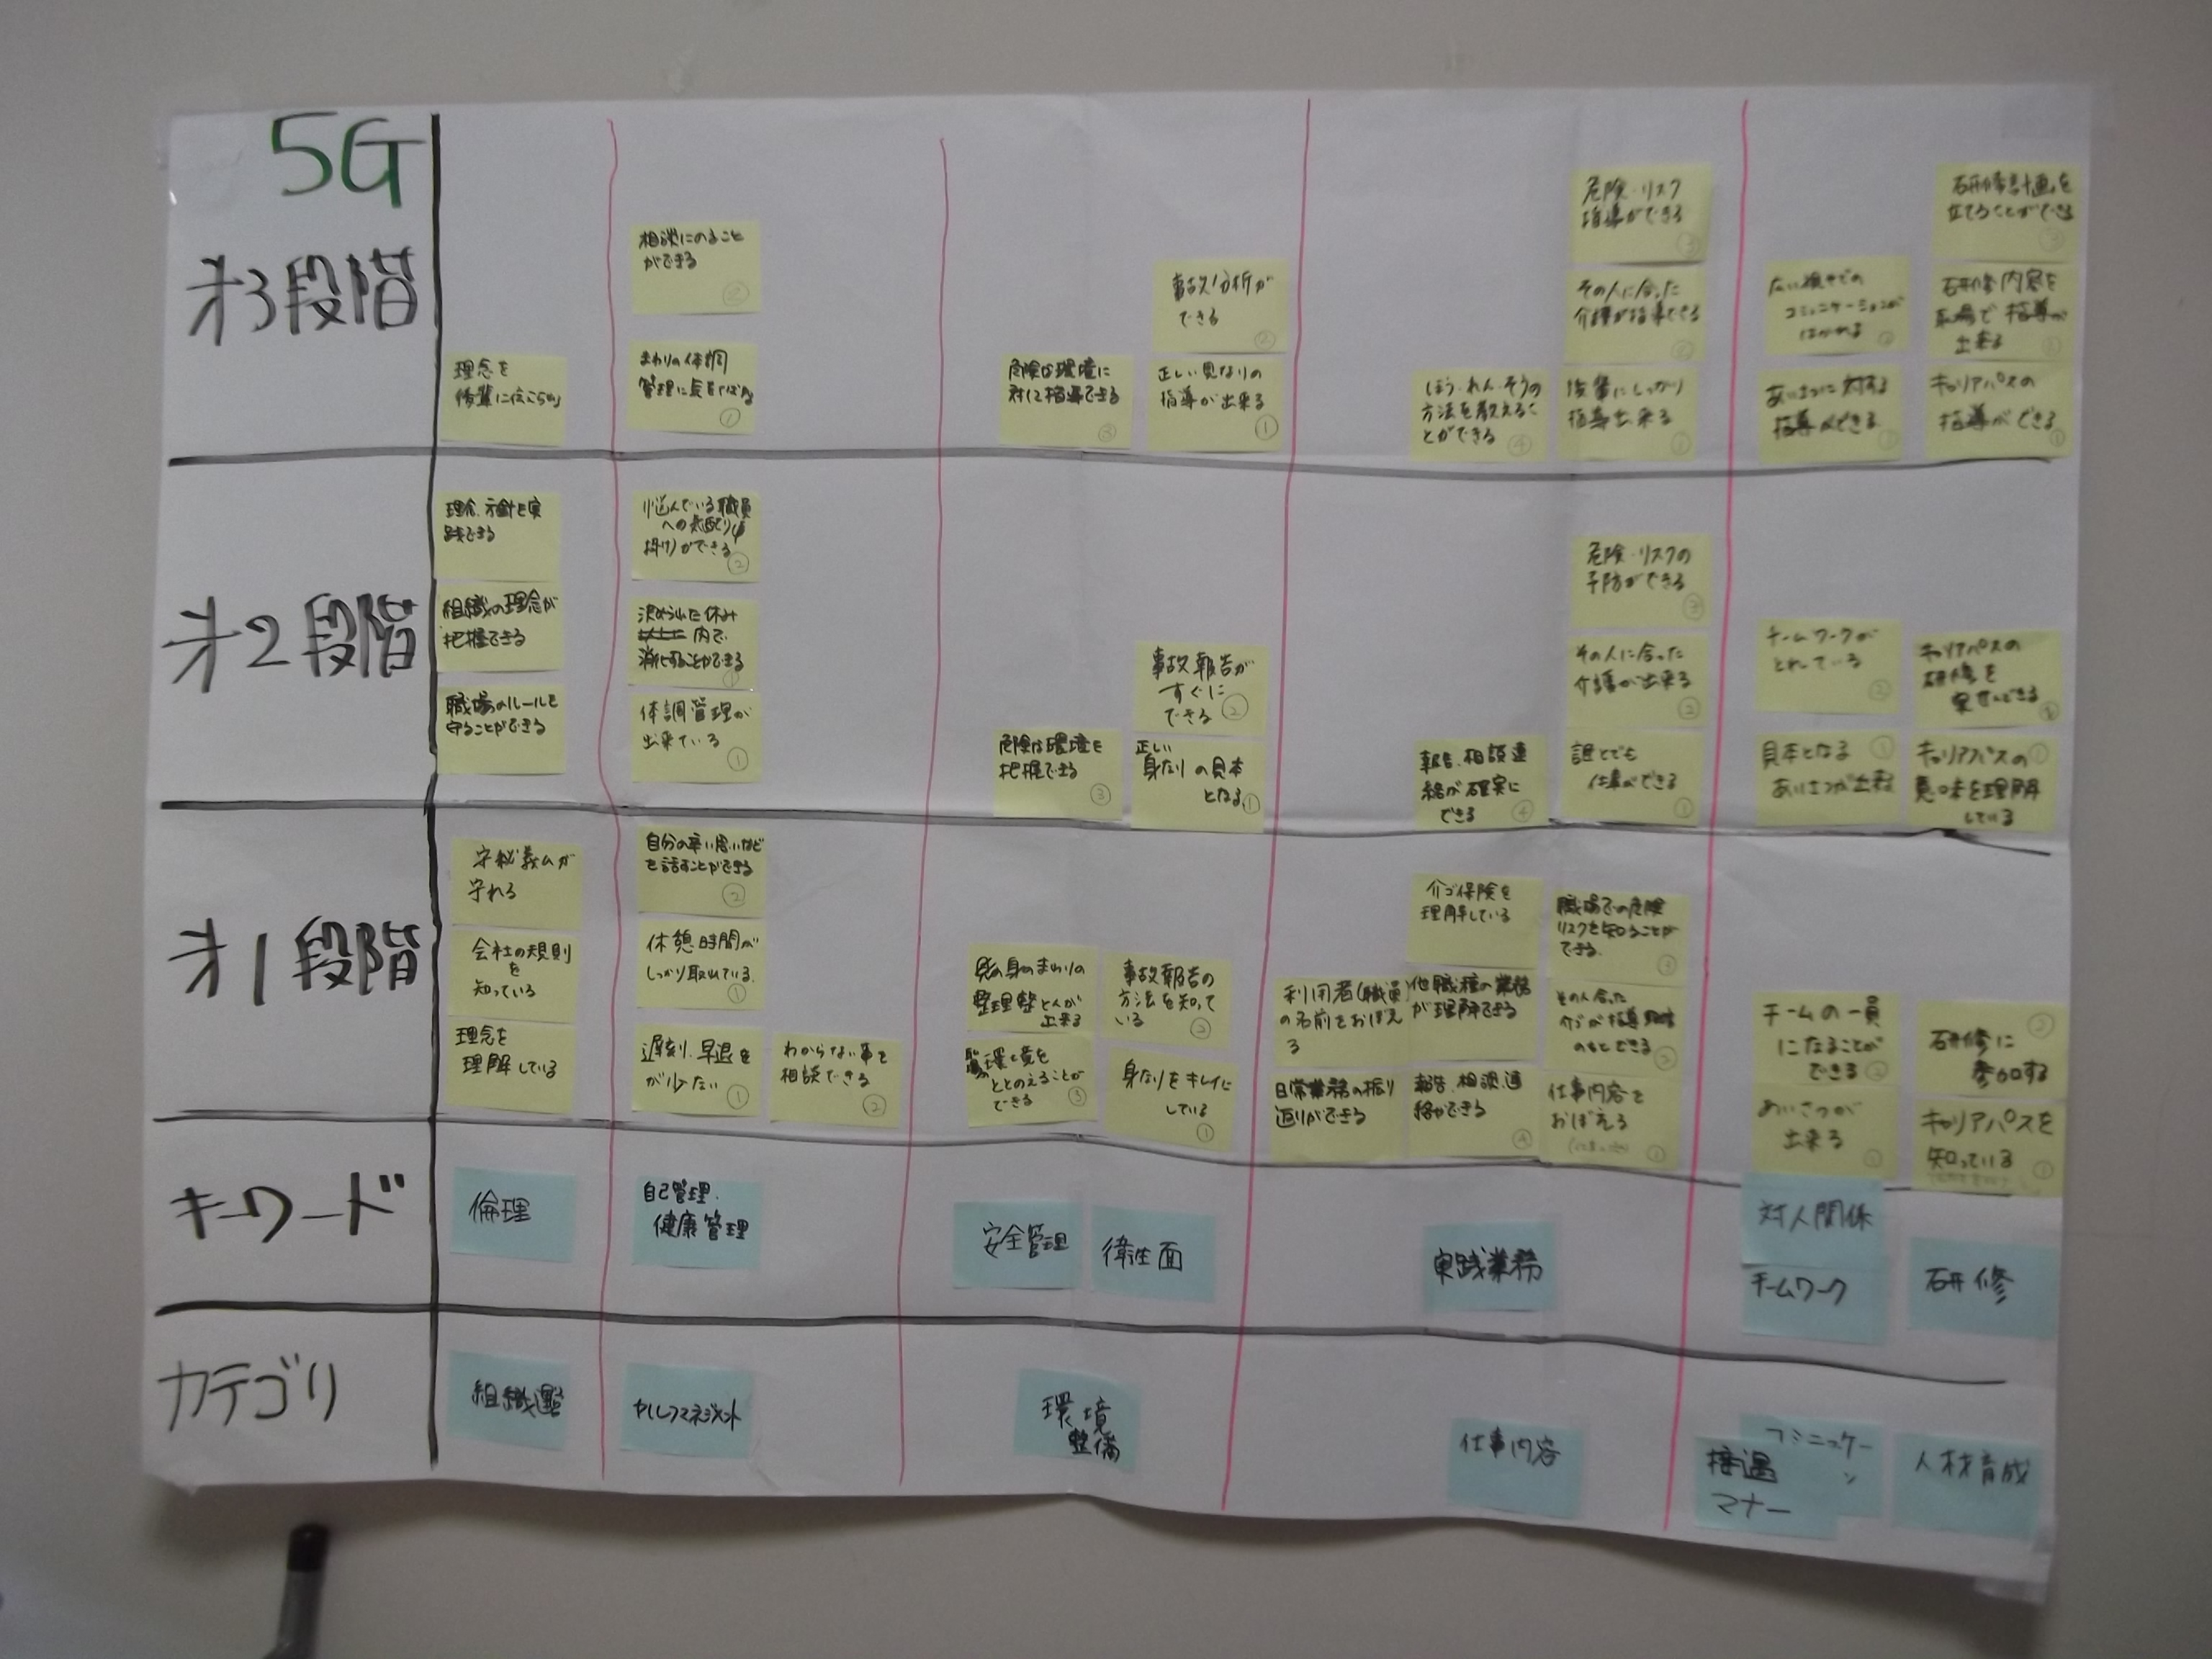 5G
才3段階
理念を
後輩に伝えられ
相談にのること
ができる
②
まわりの体調
管理に気をくばれる
①
危険な環境に
対して指導できる
③
事故分析が
できる
②
正しい身なりの
指導が出来る
①
ほう.れん.そうの
方法を教えるこ
とができる
④
危険・リスク
指導ができる
③
その人に合った
介護が指導できる
②
後輩にしっかり
指導出来る
①
コミュニケーションが
はかれる
②
あいさつに対する
指導ができる
①
研修計画を
立てることができる
研修内容を
職場で指導が
出来る
②
キャリアパスの
指導ができる
①
才2段階
理念.方針を実
践できる
組織の理念が
把握できる
職場のルールを
守ることができる
悩んでいる職員
への気配り(声
掛け)ができる
②
決められた休み
内で
消化することができる
①
体調管理が
出来ている
①
危険な環境を
把握できる
③
事故報告が
すぐに
できる
②
正しい
身なりの見本
となる
①
報告.相談連
絡が確実に
できる
④
危険・リスクの
予防ができる
③
その人に合った
介護が出来る
②
誰とでも
仕事ができる
①
チームワークが
とれている
②
見本となる
①
あいさつが出来
キャリアパスの
研修を
キャリアパスの
①
意味を理解
している
才1段階
守秘義ムが
守れる
会社の規則
を
知っている
理念を
理解している
自分の辛い思いなど
を話すことができる
②
休憩時間が
しっかり取れている.
①
遅刻.早退を
が少ない
①
わからない事を
相談できる
②
身のまわりの
整理整とんが
出来る
環境を
ととのえることが
できる
③
事故報告の
方法を知って
いる
②
身なりをキレイに
している
①
利用者(職員)
の名前をおぼえ
る
日常業務の振り
返りができる
介ゴ保険を
理解している
他職種の業務
が理解できる
報告.相談.連
絡ができる
④
職場での危険
リスクを知ることが
できる.
③
その人合った
介ゴが指導
のもとできる
②
仕事内容を
おぼえる
①
チームの一員
になることが
できる
②
あいさつが
出来る
①
②
研修に
参加する
キャリアパスを
知っている
①
キーワード
倫理
自己管理.
健康管理
安全管理
衛生面
実践業務
対人関係
チームワーク
研修
カテゴリ
組織運営
セルフマネジメント
環境
整備
仕事内容
コミニュケー
ン
接遇
マナー
人材育成